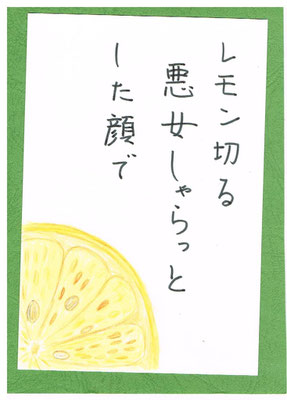 レモン切る
悪女しゃらっと
した顔で